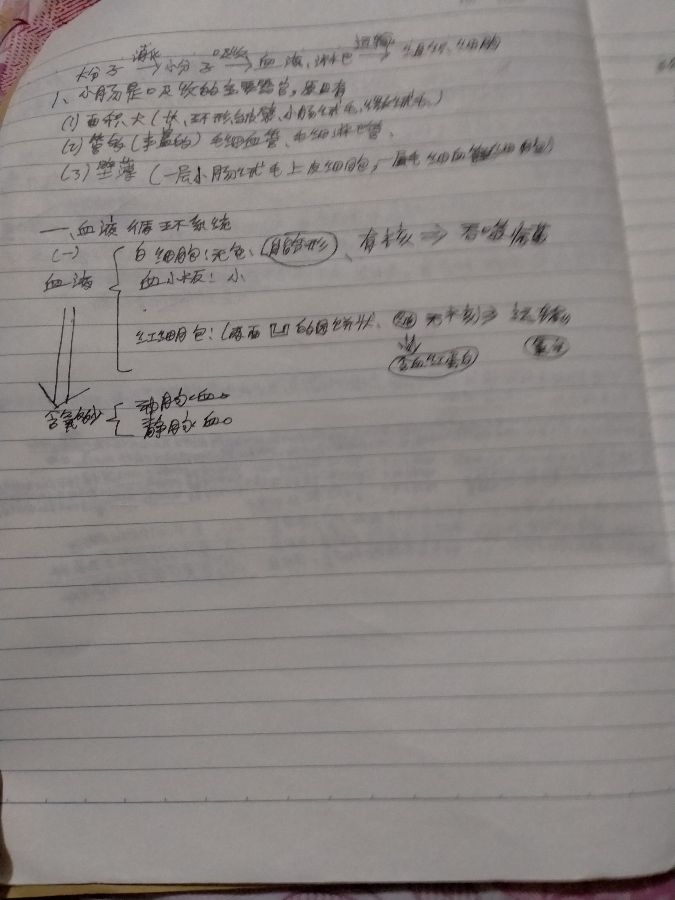 大分子 消化→ 小分子 吸收→ 血液、淋巴 运输→ 组织、细胞
1、小肠是吸收的主要器官,原因有
(1) 面积大(长、环形皱襞、小肠绒毛、微绒毛)
(2) 管多(丰富的)毛细血管、毛细淋巴管、
(3) 壁薄(一层小肠绒毛上皮细胞,一层毛细血管
一、血液循环系统
(一)
血液
白细胞:无色、有核 ⇒ 吞噬
血小板:小
红细胞: 两面凹的圆饼状、无核 ⇒
含血红蛋白
含氧多少
动脉血。
静脉血。